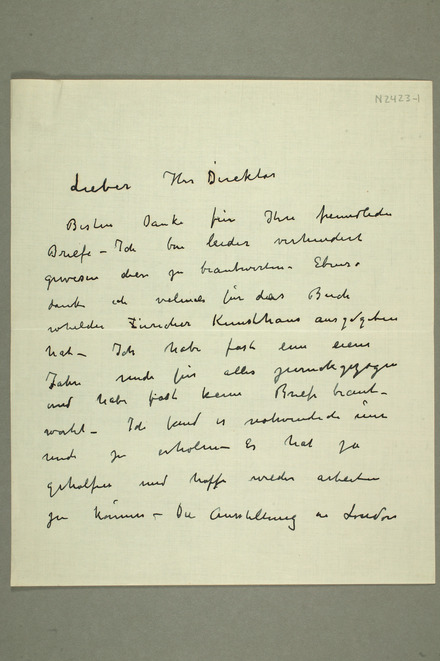 N2423-1
Lieber Herr Direktor
Besten Danke für Ihre freundliche
Briefe – Ich bin leider verhindert
gewesen diese zu beantworten – Ebenso
danke ich vielmals für das Buch
Züricher Kunsthaus ausgegeben
hat – Ich habe fast
Jahr mich für alles zurückgezogen
und habe fast keine Briefe beant-
wortet – Ich fand es notwendig
mich zu erholen – Es hat ja
geholfen und hoffe wieder arbeiten
zu können – Die Ausstellung in London